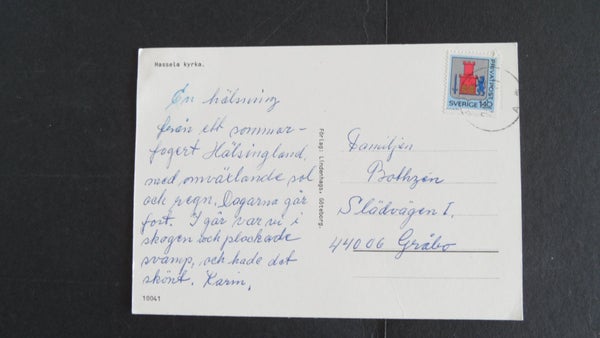 Hassela kyrka.
En hälsning
från ett sommar-
fagert Hälsingland,
med omväxlande sol
och regn. Dagarna går
fort. I går var vi i
skogen och plockade
svamp, och hade det
skönt. Karin.
10041
Förlag: Lindenhags, Göteborg.
PRIVATPOST
SVERIGE 140
Familjen
Bothzén
Slädvägen 1.
44006 Gråbo